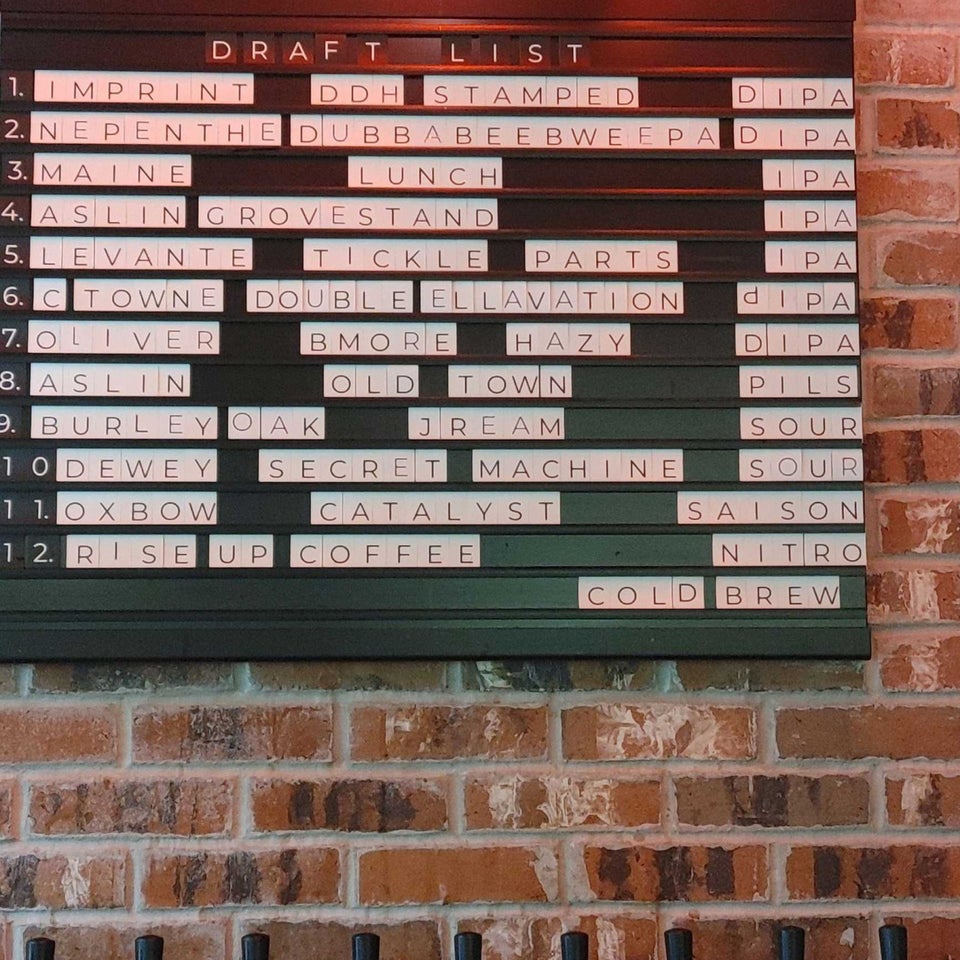 DRAFT LIST
1. IMPRINT DDH STAMPED DIPA
2. NEPENTHE DUBBABEEBWEEPA DIPA
3. MAINE LUNCH IPA
4. ASLIN GROVESTAND IPA
5. LEVANTE TICKLE PARTS IPA
6. C TOWNE DOUBLE ELLAVATION dIPA
7. OLIVER BMORE HAZY DIPA
8. ASLIN OLD TOWN PILS
9. BURLEY OAK JREAM SOUR
10 DEWEY SECRET MACHINE SOUR
11. OXBOW CATALYST SAISON
12. RISE UP COFFEE NITRO
COLD BREW